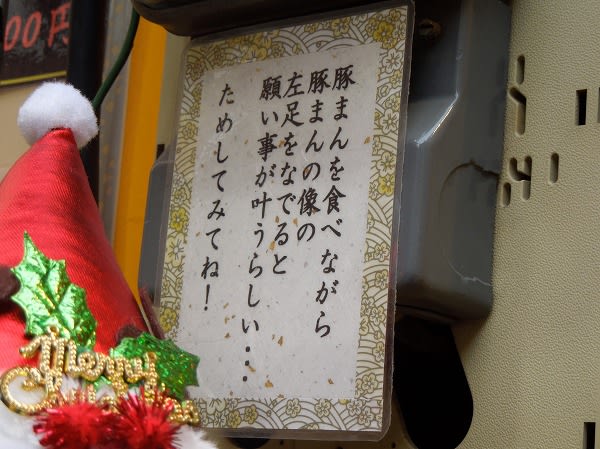 00円
豚まんを食べながら
豚まんの像の
左足をなでると
願い事が叶うらしい・・・
ためしてみてね!
Merry
Christmas